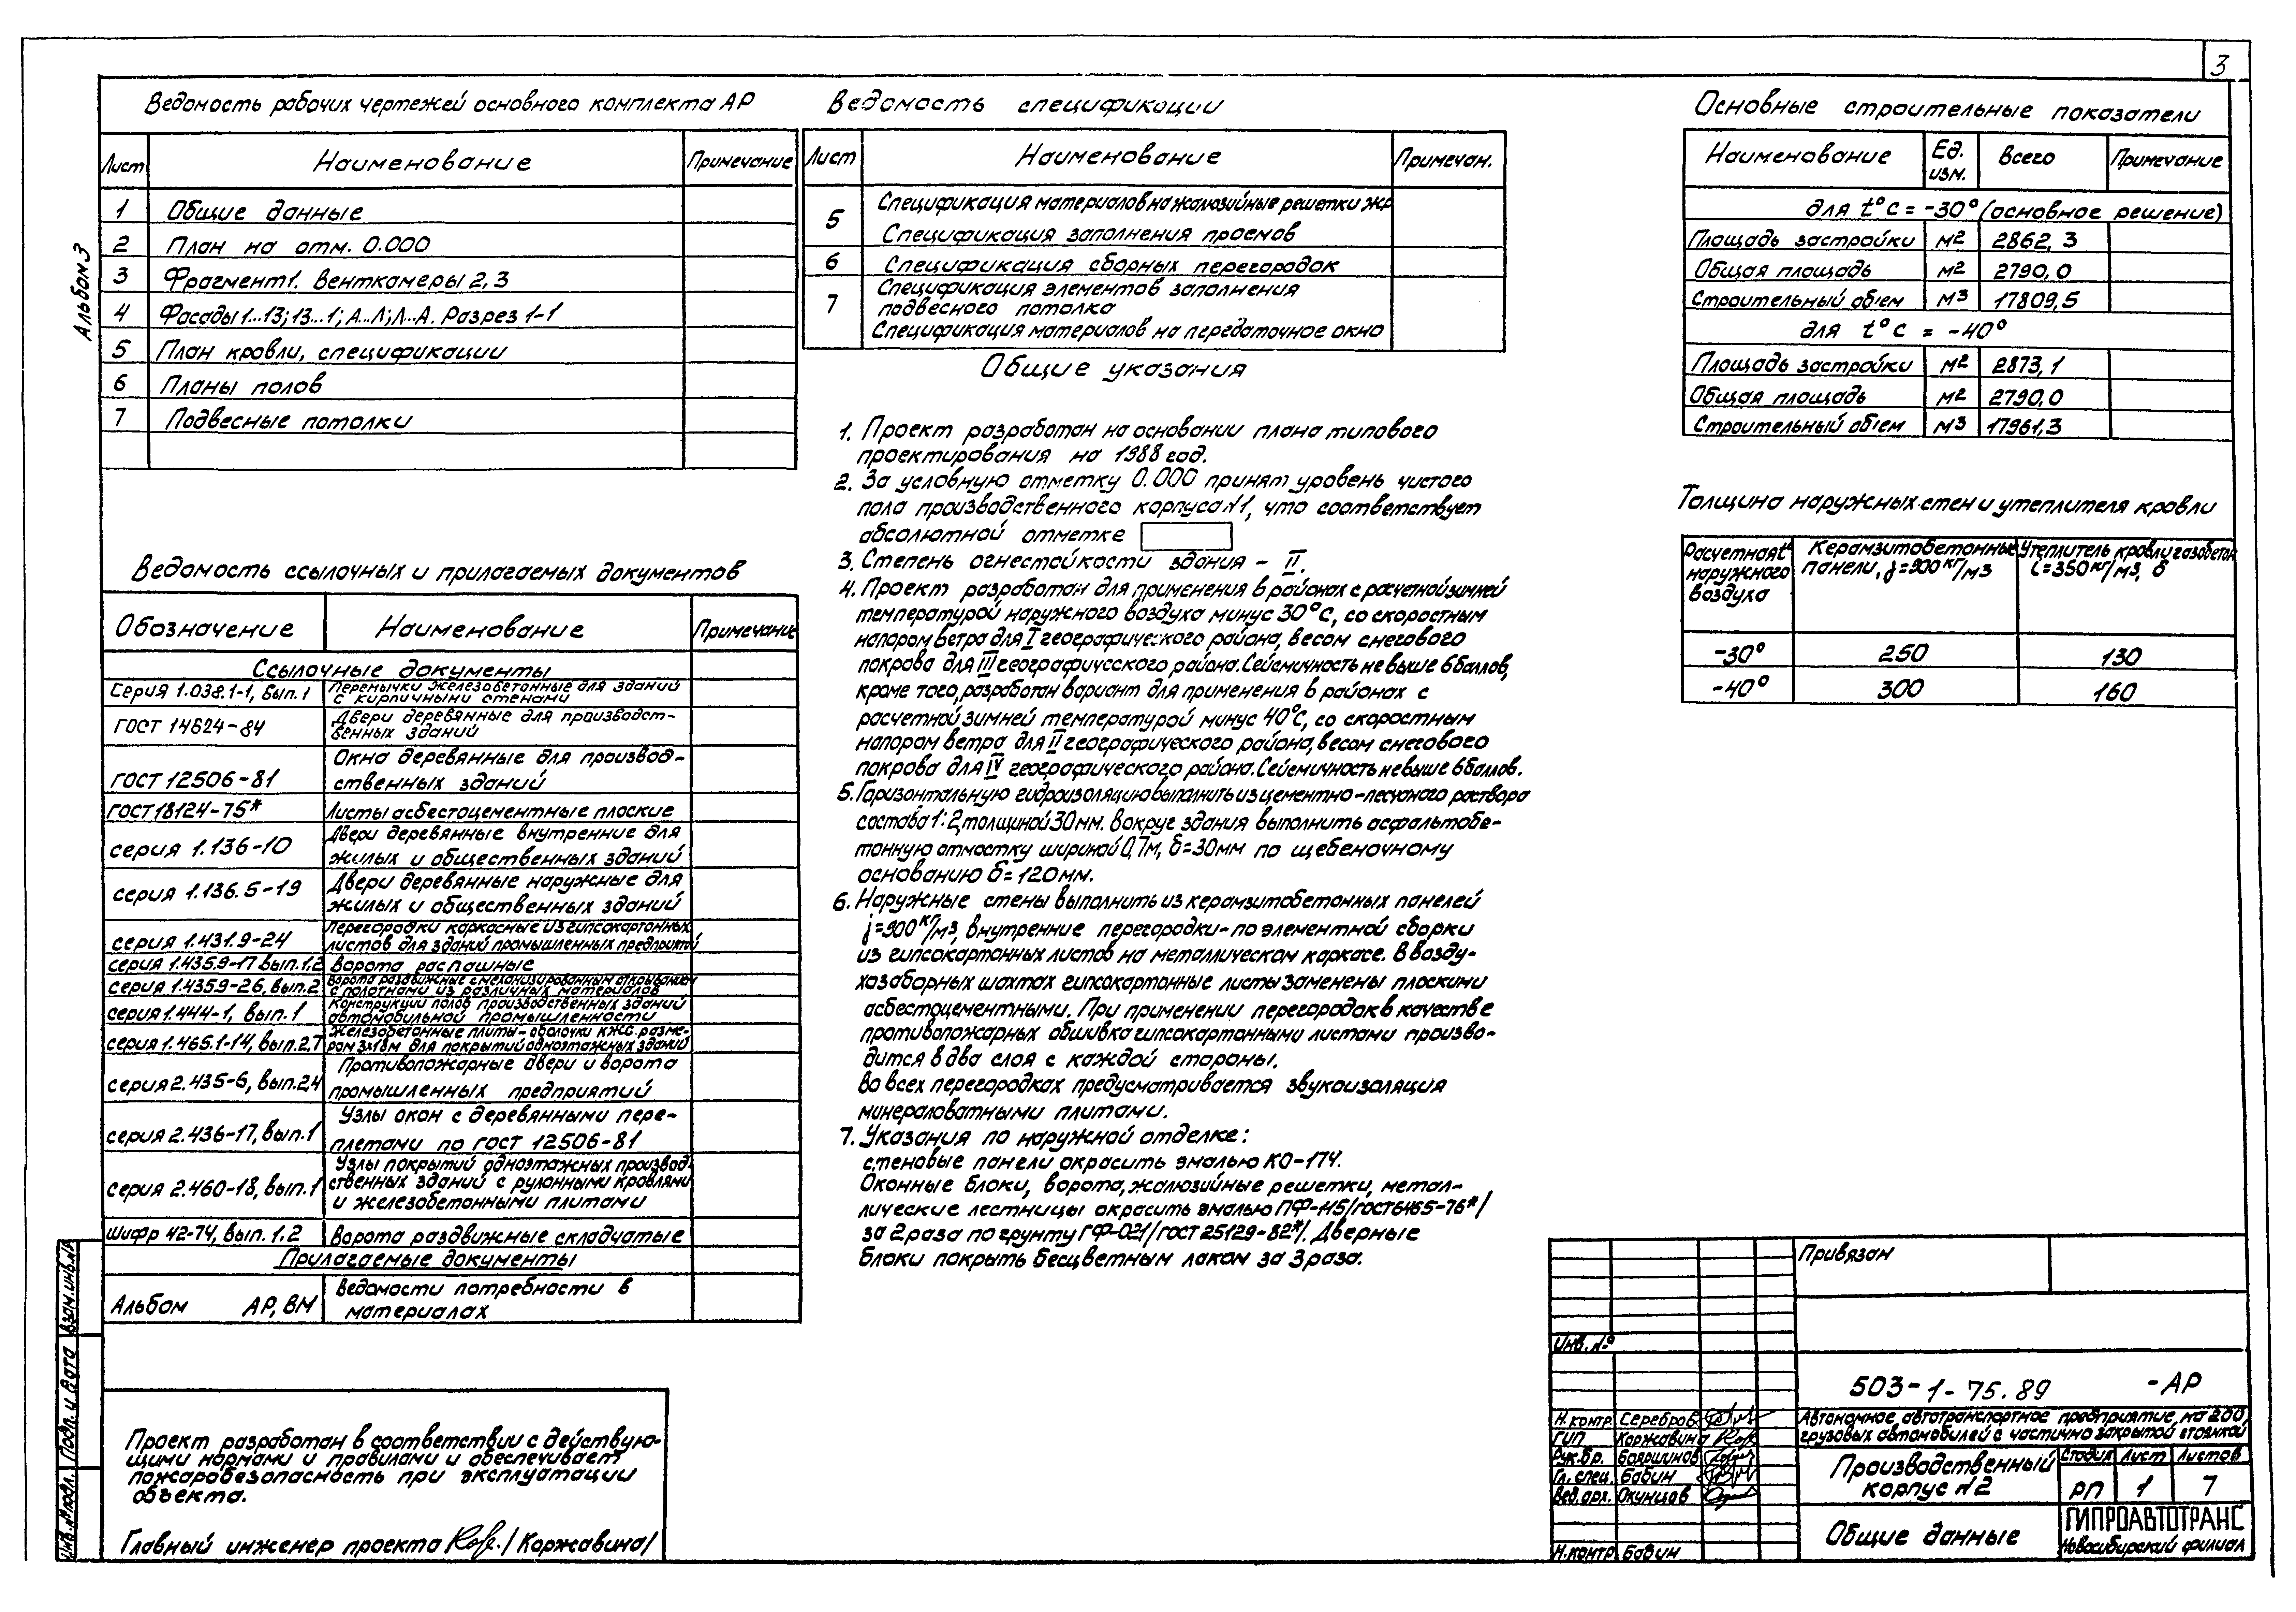 3
Альбом 3
Ведомость рабочих чертежей основного комплекта АР
Лист Наименование Примечание
1 Общие данные
2 План на отм. 0.000
3 Фрагмент 1. Венткамеры 2,3
4 Фасады 1...13; 13...1; А...Л; Л...А. Разрез 1-1
5 План кровли, спецификации
6 Планы полов
7 Подвесные потолки
Ведомость спецификации
Лист Наименование Примечан.
5 Спецификация материалов на жалюзийные решетки жр
Спецификация заполнения проемов
6 Спецификация сборных перегородок
7 Спецификация элементов заполнения
подвесного потолка
Спецификация материалов на передаточное окно
Основные строительные показатели
Наименование Ед. изм. Всего Примечание
для t°С = -30° (основное решение)
Площадь застройки м2 2862,3
Общая площадь м2 2790,0
Строительный объем м3 17809,5
для t°С = -40°
Площадь застройки м2 2873,1
Общая площадь м2 2790,0
Строительный объем м3 17961,3
Толщина наружных стен и утеплителя кровли
Расчетная t° наружного воздуха
Керамзитобетонные панели, j=900 кг/м3
Утеплитель кровли газобетон i=350 кг/м3, δ
-30° 250 130
-40° 300 160
Ведомость ссылочных и прилагаемых документов
Обозначение Наименование Примечание
Ссылочные документы
Серия 1.038.1-1, вып. 1 Перемычки железобетонные для зданий
с кирпичными стенами
ГОСТ 14624-84 Двери деревянные для производст-
венных зданий
ГОСТ 12506-81 Окна деревянные для производ-
ственных зданий
ГОСТ 18124-75* Листы асбестоцементные плоские
серия 1.136-10 Двери деревянные внутренние для
жилых и общественных зданий
серия 1.136.5-19 Двери деревянные наружные для
жилых и общественных зданий
серия 1.431.9-24 Перегородки каркасные из гипсокартонных
листов для зданий промышленных предприятий
серия 1.435.9-17 вып. 1.2 Ворота распашные
серия 1.435.9-26, вып. 2 Ворота раздвижные с механизированным открыванием
с полотнами из различных материалов
серия 1.444-1, вып. 1 Конструкции полов производственных зданий
автомобильной промышленности
серия 1.465.1-14, вып. 2,7 Железобетонные плиты-оболочки КЖС разме-
ром 3х18м для покрытий одноэтажных зданий
серия 2.435-6, вып. 2.4 Противопожарные двери и ворота
промышленных предприятий
серия 2.436-17, вып. 1 Узлы окон с деревянными пере-
плетами по ГОСТ 12506-81
серия 2.460-18, вып. 1 Узлы покрытий одноэтажных производ-
ственных зданий с рулонными кровлями
и железобетонными плитами
Шифр 42-74, вып. 1.2 Ворота раздвижные складчатые
Прилагаемые документы
Альбом АР, ВМ Ведомости потребности в
материалах
Общие указания
1. Проект разработан на основании плана типового
проектирования на 1988 год.
2. За условную отметку 0.000 принят уровень чистого
пола производственного корпуса N1, что соответствует
абсолютной отметке
3. Степень огнестойкости здания - II.
4. Проект разработан для применения в районах с расчетной зимней
температурой наружного воздуха минус 30°С, со скоростным
напором ветра для I географического района, весом снегового
покрова для III географического района. Сейсмичность не выше 6 баллов,
кроме того, разработан вариант для применения в районах с
расчетной зимней температурой минус 40°С, со скоростным
напором ветра для II географического района, весом снегового
покрова для IV географического района. Сейсмичность не выше 6 баллов.
5. Горизонтальную гидроизоляцию выполнить из цементно-песчаного раствора
состава 1:2, толщиной 30мм. Вокруг здания выполнить асфальтобе-
тонную отмостку шириной 0,7м, δ=30мм по щебеночному
основанию δ=120мм.
6. Наружные стены выполнить из керамзитобетонных панелей
j=900 кг/м3, внутренние перегородки - поэлементной сборки
из гипсокартонных листов на металлическом каркасе. В возду-
хозаборных шахтах гипсокартонные листы заменены плоскими
асбестоцементными. При применении перегородок в качестве
противопожарных обшивка гипсокартонными листами произво-
дится в два слоя с каждой стороны.
Во всех перегородках предусматривается звукоизоляция
минераловатными плитами.
7. Указания по наружной отделке:
стеновые панели окрасить эмалью КО-174.
Оконные блоки, ворота, жалюзийные решетки, метал-
лические лестницы окрасить эмалью ПФ-115/ГОСТ 6465-76*/
за 2 раза по грунту ГФ-021/ГОСТ 25129-82*/. Дверные
блоки покрыть бесцветным лаком за 3 раза.
Проект разработан в соответствии с действую-
щими нормами и правилами и обеспечивает
пожаробезопасность при эксплуатации
объекта.
Главный инженер проекта /Коржавина/
Взам. инв. №
Подп. и дата
Инв. № подл.
Привязан
Инв. №
503-1-75.89 -АР
Н. контр. Серебров
ГИП Коржавина
Рук. бр. Бояршинов
Гл. спец. Бабин
Вед. арх. Окунцов
Н. контр. Бабин
Автономное автотранспортное предприятие на 200
грузовых автомобилей с частично закрытой стоянкой
Производственный
корпус N2
Стадия Лист Листов
РП 1 7
Общие данные
ГИПРОАВТОТРАНС
Новосибирский филиал